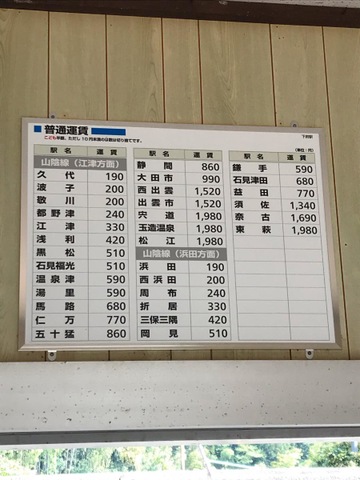 普通運賃
こども半額。ただし10円未満の端数は切り捨てです。
下府駅
(単位:円)
駅名 運賃
山陰線(江津方面)
久代 190
波子 200
敬川 200
都野津 240
江津 330
浅利 420
黒松 510
石見福光 510
温泉津 590
湯里 590
馬路 680
仁万 770
五十猛 860
駅名 運賃
静間 860
大田市 990
西出雲 1,520
出雲市 1,520
宍道 1,980
玉造温泉 1,980
松江 1,980
山陰線(浜田方面)
浜田 190
西浜田 200
周布 240
折居 330
三保三隅 420
岡見 510
駅名 運賃
鎌手 590
石見津田 680
益田 770
須佐 1,340
奈古 1,690
東萩 1,980